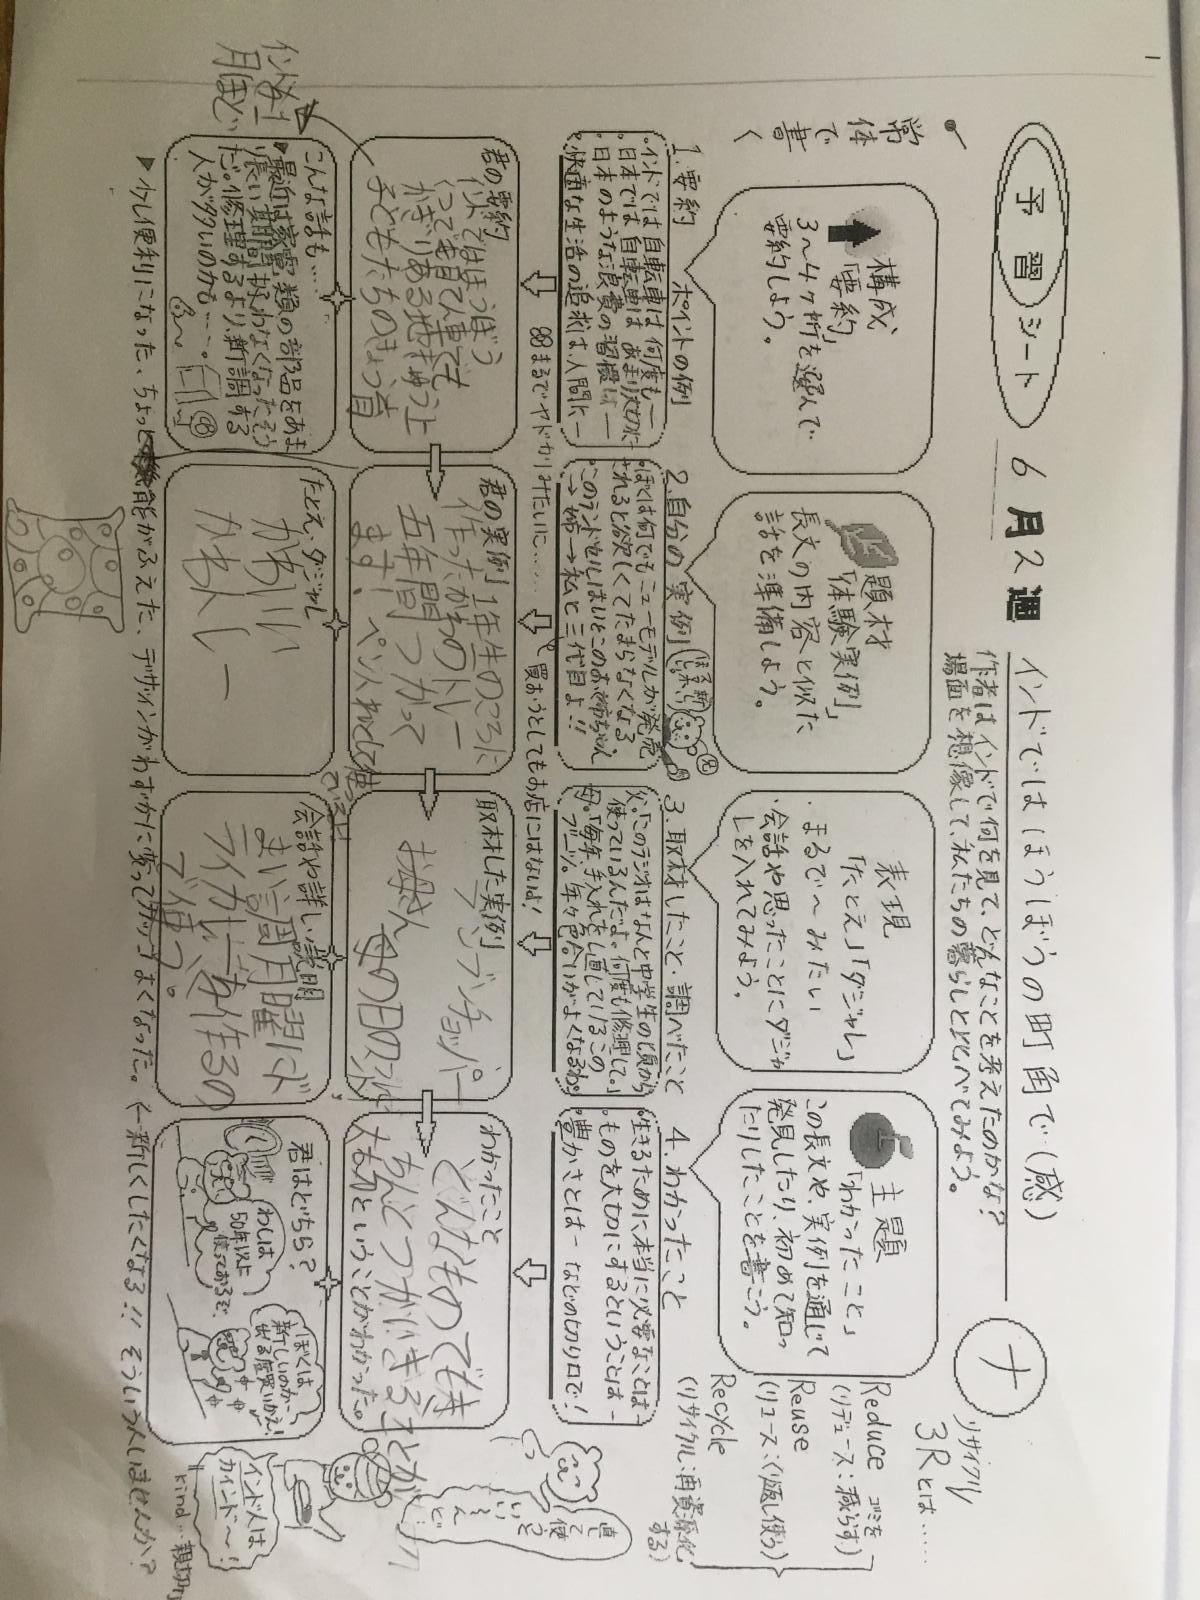 予習シート 6月2週 インドではほうぼうの町角で(感)
作者はインドで何を見て、どんなことを考えたのかな?
場面を想像して、私たちの暮らしと比べてみよう。
ナ
リサイクル
3Rとは……
Reduce ゴミを
(リデュース:減らす)
Reuse
(リユース:くり返し使う)
Recycle
(リサイクル:再資源化
する)
常体で書く
構成
「要約」
3〜4ヶ所を選んで
要約しよう。
題材
「体験実例」
長文の内容と似た
話を準備しよう。
表現
「たとえ」「ダジャレ」
まるで〜みたい
・会話や思ったことにダジャ
レを入れてみよう。
主題
「わかったこと」
この長文や、実例を通じて
発見したり、初めて知っ
たりしたことを書こう。
1.要約 ポイントの例
・インドでは自転車は何度も―
・日本では自転車はあまり大切に―
・日本のような浪費の習慣は―
・快適な生活の追求は人間に―
2.自分の実例
・ぼくは何でもニューモデルが発売
されると欲しくてたまらなくなる
・このランドセルはいとこのお姉ちゃん
→姉→私と三代目よ!!
3.取材したこと・調べたこと
父「このラジオはなんと中学生の頃から
使っているんだよ。何度も修理して。」
母「毎年、手入れをし直しているこの
ブーツ。年々色合いがよくなるわ。
4.わかったこと
・生きるために本当に必要なことは―
・ものを大切にするということは―
・豊かさとは― などの切り口で!
まるでヤドカリみたいに……
買おうとしてもお店にはないよ!
直して使うといいんだ
君の要約
インドではほうぼう
君の実例
1年生のころに
作ったかみねんどのトレー
五年間つかって
ます!
取材した実例
お母さん
母の日のプレゼント
わかったこと
どんなものでも
大切ということがわかった。
こんな話も…
最近は家電類の部品をあま
り長い期間扱わなくなったそう
だ。修理するより、新調する
人が多いのかも……。
たとえ、ダジャレ
会話や詳しい説明
まい週月曜にド
ライカレーを作るの
で使う。
君はどちら?
わしは
50年以上
使っておるぞ。
ぼくは
新しいのが
出る度買いかえ!
インド人は
カインド〜!
kind…親切な
▶少し便利になった、ちょっと機能がふえた、デザインがわずかに変ってカッコよくなった。(←新しくしたくなる!! そういう人いませんか?